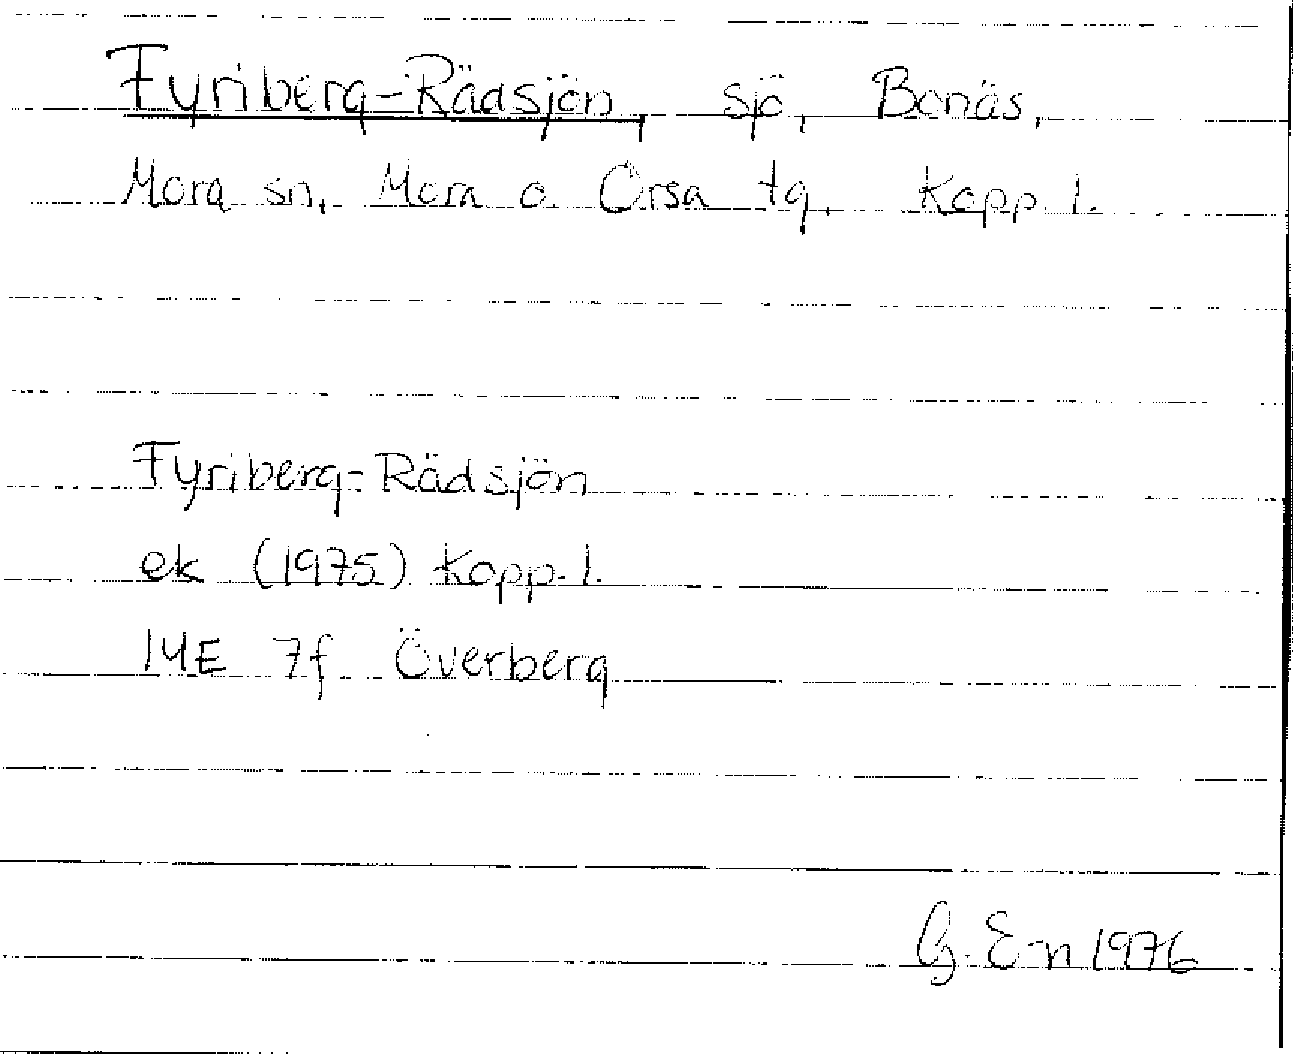 Fyriberg-Rädsjön, sjö, Bonäs,
Mora sn, Mora o. Orsa tg, Kopp. l.
Fyriberg-Rädsjön
ek (1975) Kopp. l.
14E 7f Överberg
G. E-n 1976